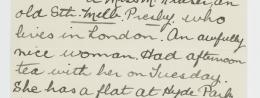 old Eth. Mills. Presby. who
lives in London. An awfully
nice woman. Had afternoon
tea with her on Tuesday.
She has a flat at Hyde Park